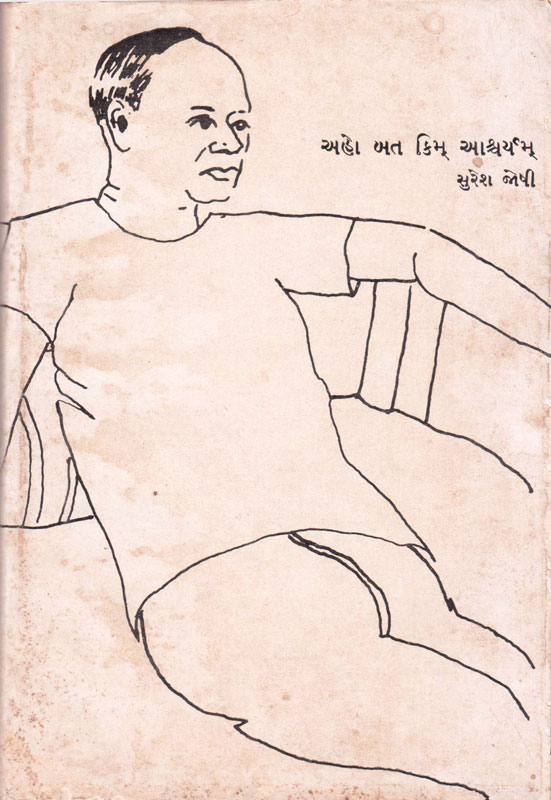 અહો બત કિમ્ આશ્ચર્યમ્
સુરેશ જોષી